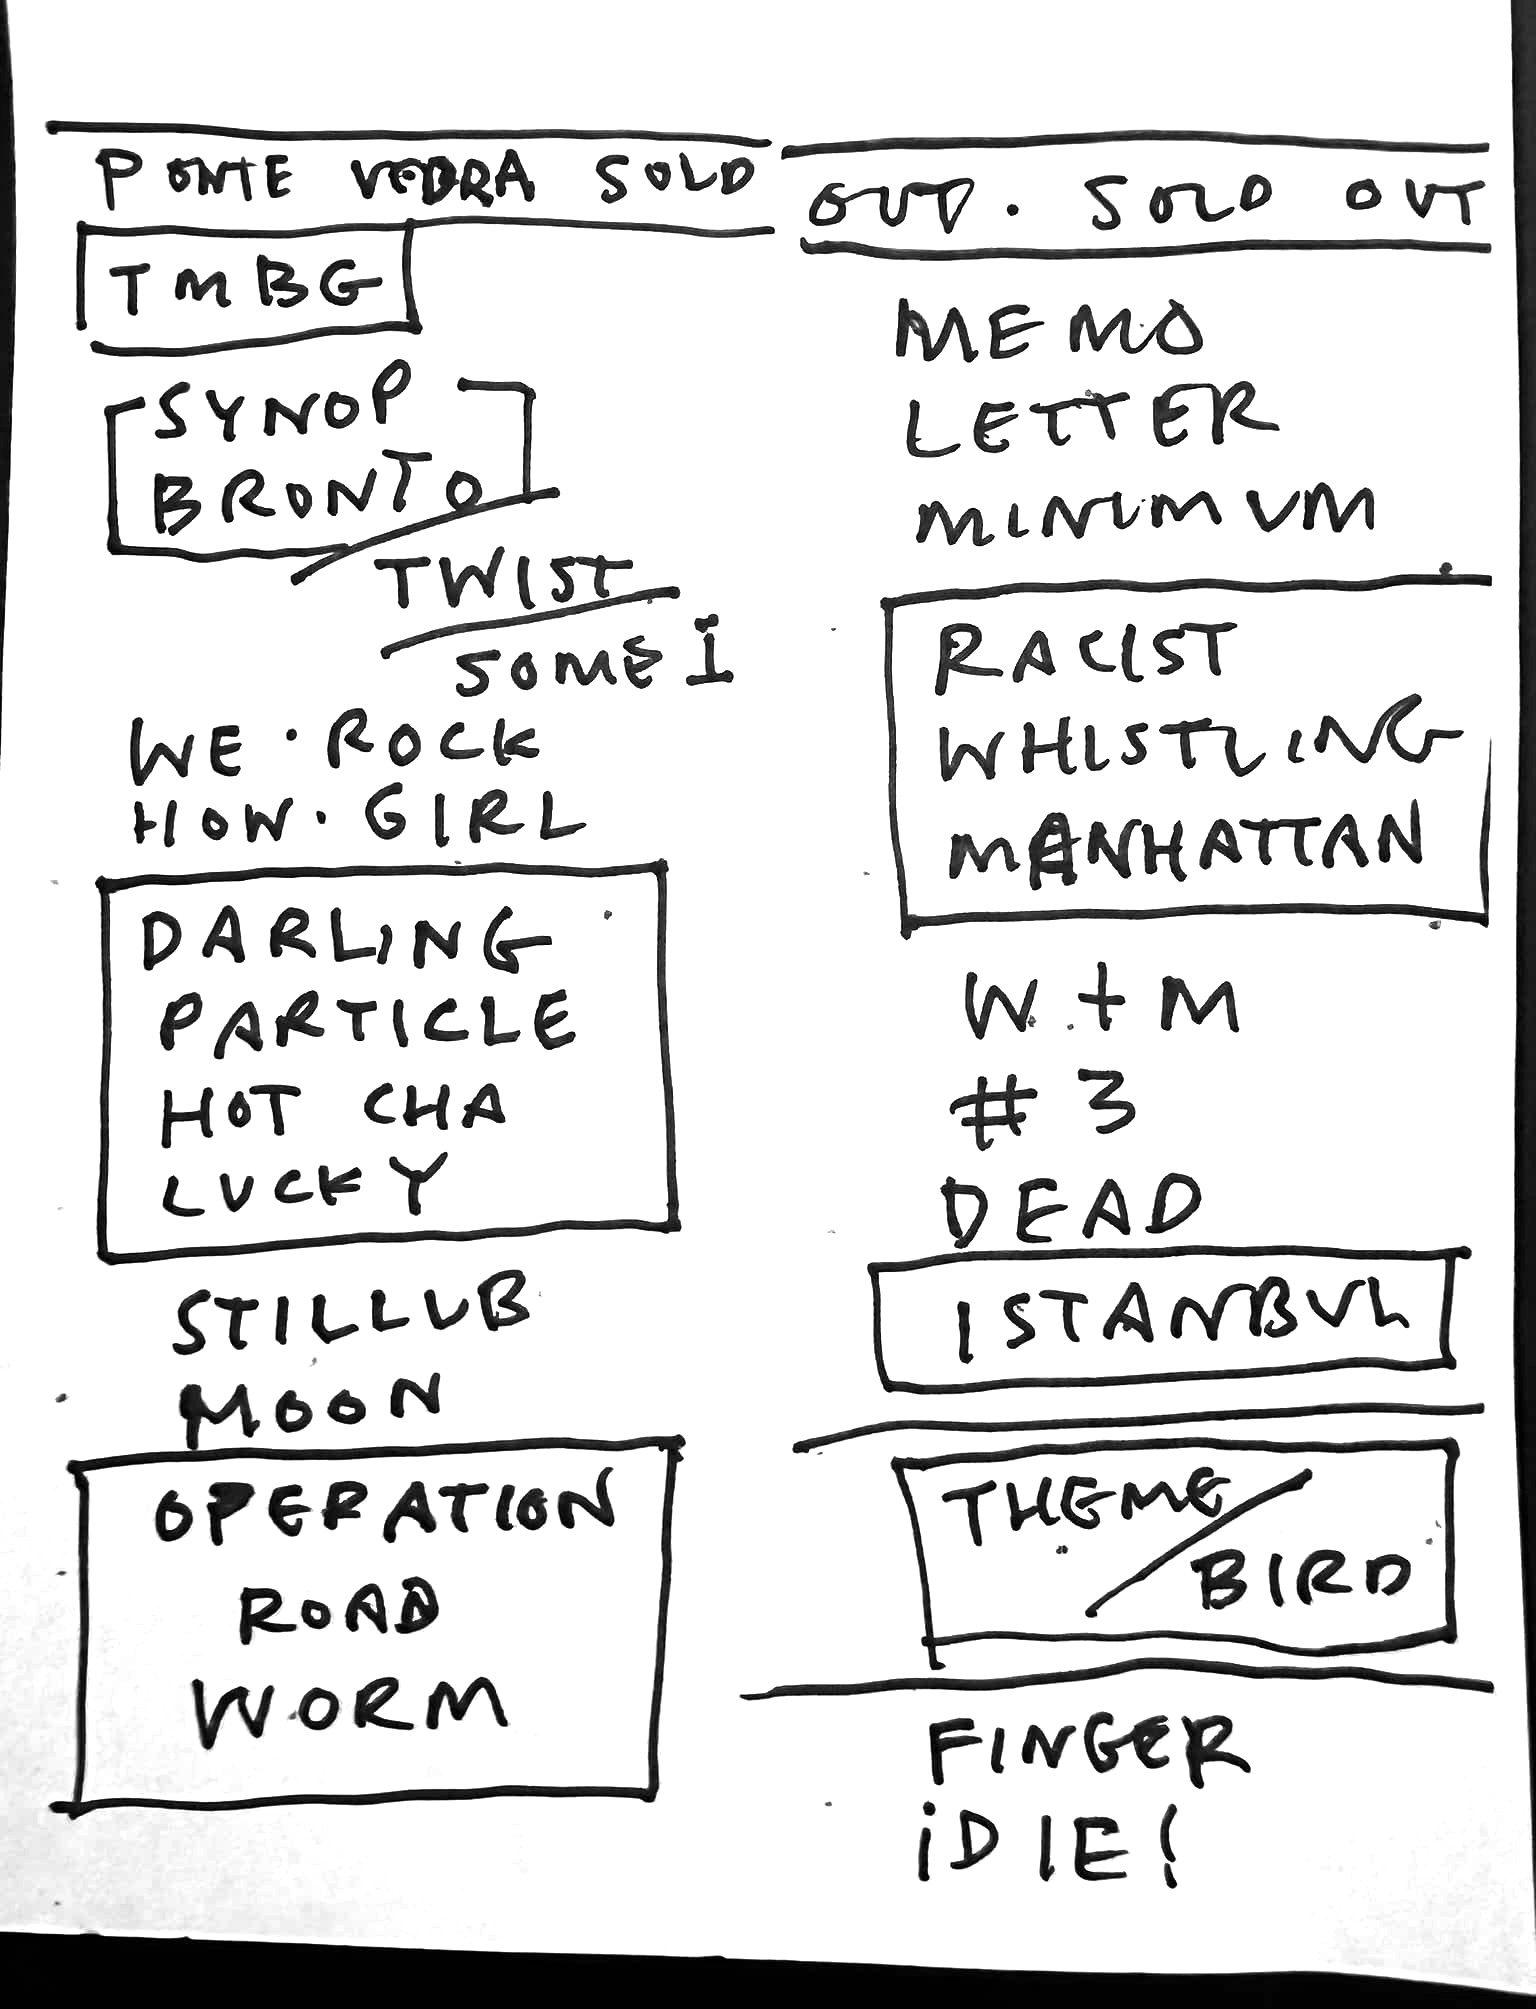 PONTE VEDRA SOLD
TMBG
SYNOP
BRONTO
TWIST
SOME I
WE · ROCK
HOW · GIRL
DARLING
PARTICLE
HOT CHA
LUCKY
STILLUB
MOON
OPERATION
ROAD
WORM
OUT. SOLD OUT
MEMO
LETTER
MINIMUM
RACIST
WHISTLING
MANHATTAN
W + M
# 3
DEAD
ISTANBUL
THEME/
BIRD
FINGER
iDIE!